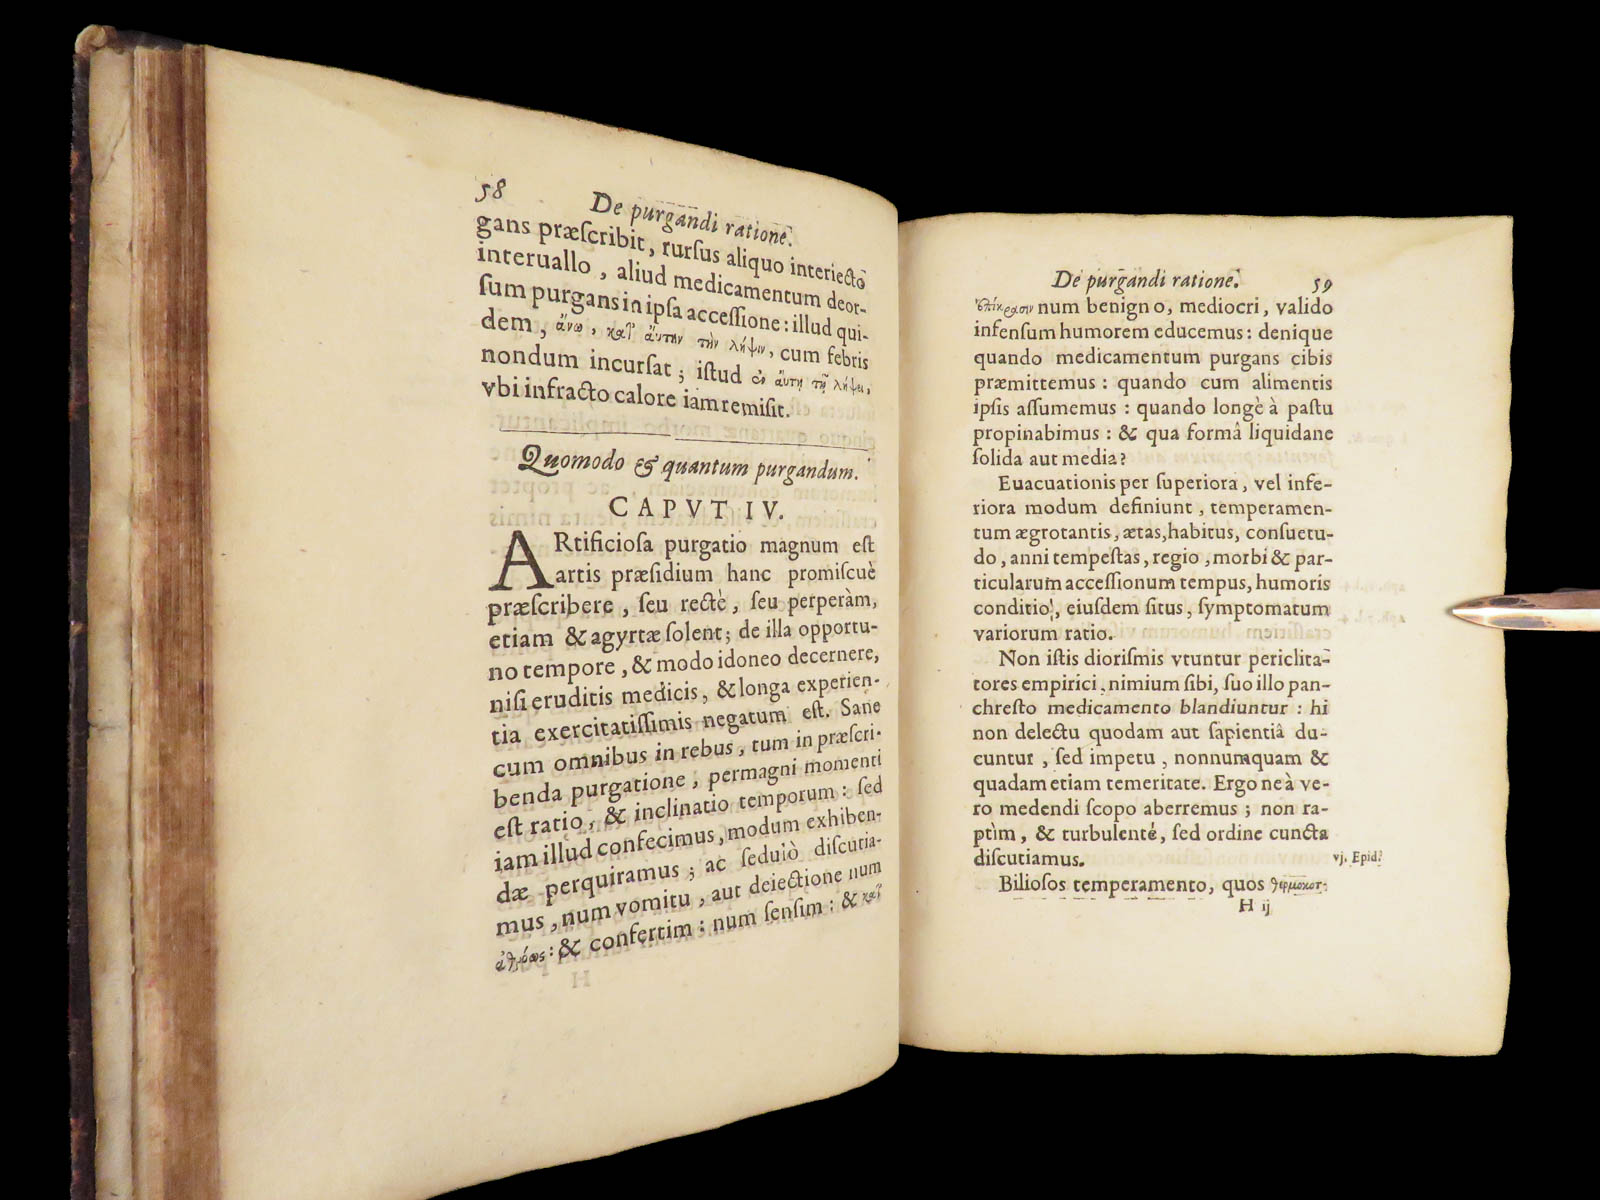 58
De purgandi ratione.
gans præſcribit, rurſus aliquo interiecto
interuallo, aliud medicamentum deor-
ſum purgans in ipſa acceſſione: illud qui-
dem, ἄνω, καὶ ἄυτην τὴν λῆψιν, cum febris
nondum incurſat; iſtud ἐν ἄυτη τῇ λήψει,
vbi infracto calore iam remiſit.
Quomodo & quantum purgandum.
CAPVT IV.
ARtificioſa purgatio magnum eſt
artis præſidium hanc promiſcuè
præſcribere, ſeu rectè, ſeu perperàm,
etiam & agyrtæ ſolent; de illa opportu-
no tempore, & modo idoneo decernere,
niſi eruditis medicis, & longa experien-
tia exercitatiſſimis negatum eſt. Sane
cum omnibus in rebus, tum in præſcri-
benda purgatione, permagni momenti
eſt ratio, & inclinatio temporum: ſed
iam illud confecimus, modum exhiben-
dæ perquiramus; ac ſeduiò diſcutia-
mus, num vomitu, aut deiectione num
ἀθρόως: & confertim: num ſenſim: & καὶ
De purgandi ratione.
59
ἐπίκρασιν num benigno, mediocri, valido
infenſum humorem educemus: denique
quando medicamentum purgans cibis
præmittemus: quando cum alimentis
ipſis aſſumemus: quando longè à paſtu
propinabimus: & qua formâ liquidane
ſolida aut media?
Euacuationis per ſuperiora, vel infe-
riora modum definiunt, temperamen-
tum ægrotantis, ætas, habitus, conſuetu-
do, anni tempeſtas, regio, morbi & par-
ticularum acceſſionum tempus, humoris
conditio, eiuſdem ſitus, ſymptomatum
variorum ratio.
Non iſtis dioriſmis vtuntur periclita-
tores empirici, nimium ſibi, ſuo illo pan-
chreſto medicamento blandiuntur: hi
non delectu quodam aut ſapientiâ du-
cuntur, ſed impetu, nonnunquam &
quadam etiam temeritate. Ergo ne à ve-
ro medendi ſcopo aberremus; non ra-
ptìm, & turbulenté, ſed ordine cuncta
diſcutiamus.
vj. Epid.
Bilioſos temperamento, quos θερμοκοι-
H ij